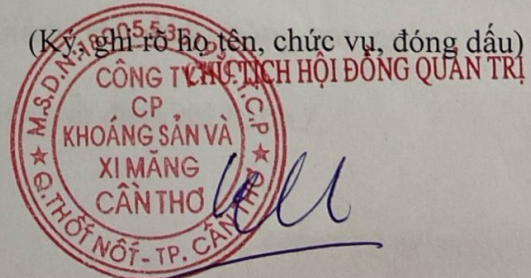 (Ký, ghi rõ họ tên, chức vụ, đóng dấu)
CHỦ TỊCH HỘI ĐỒNG QUẢN TRỊ
M.S.D.N:
C.P
CÔNG TY
CP
KHOÁNG SẢN VÀ
XI MĂNG
CẦN THƠ
Q.THỐT NỐT - TP. CẦN THƠ